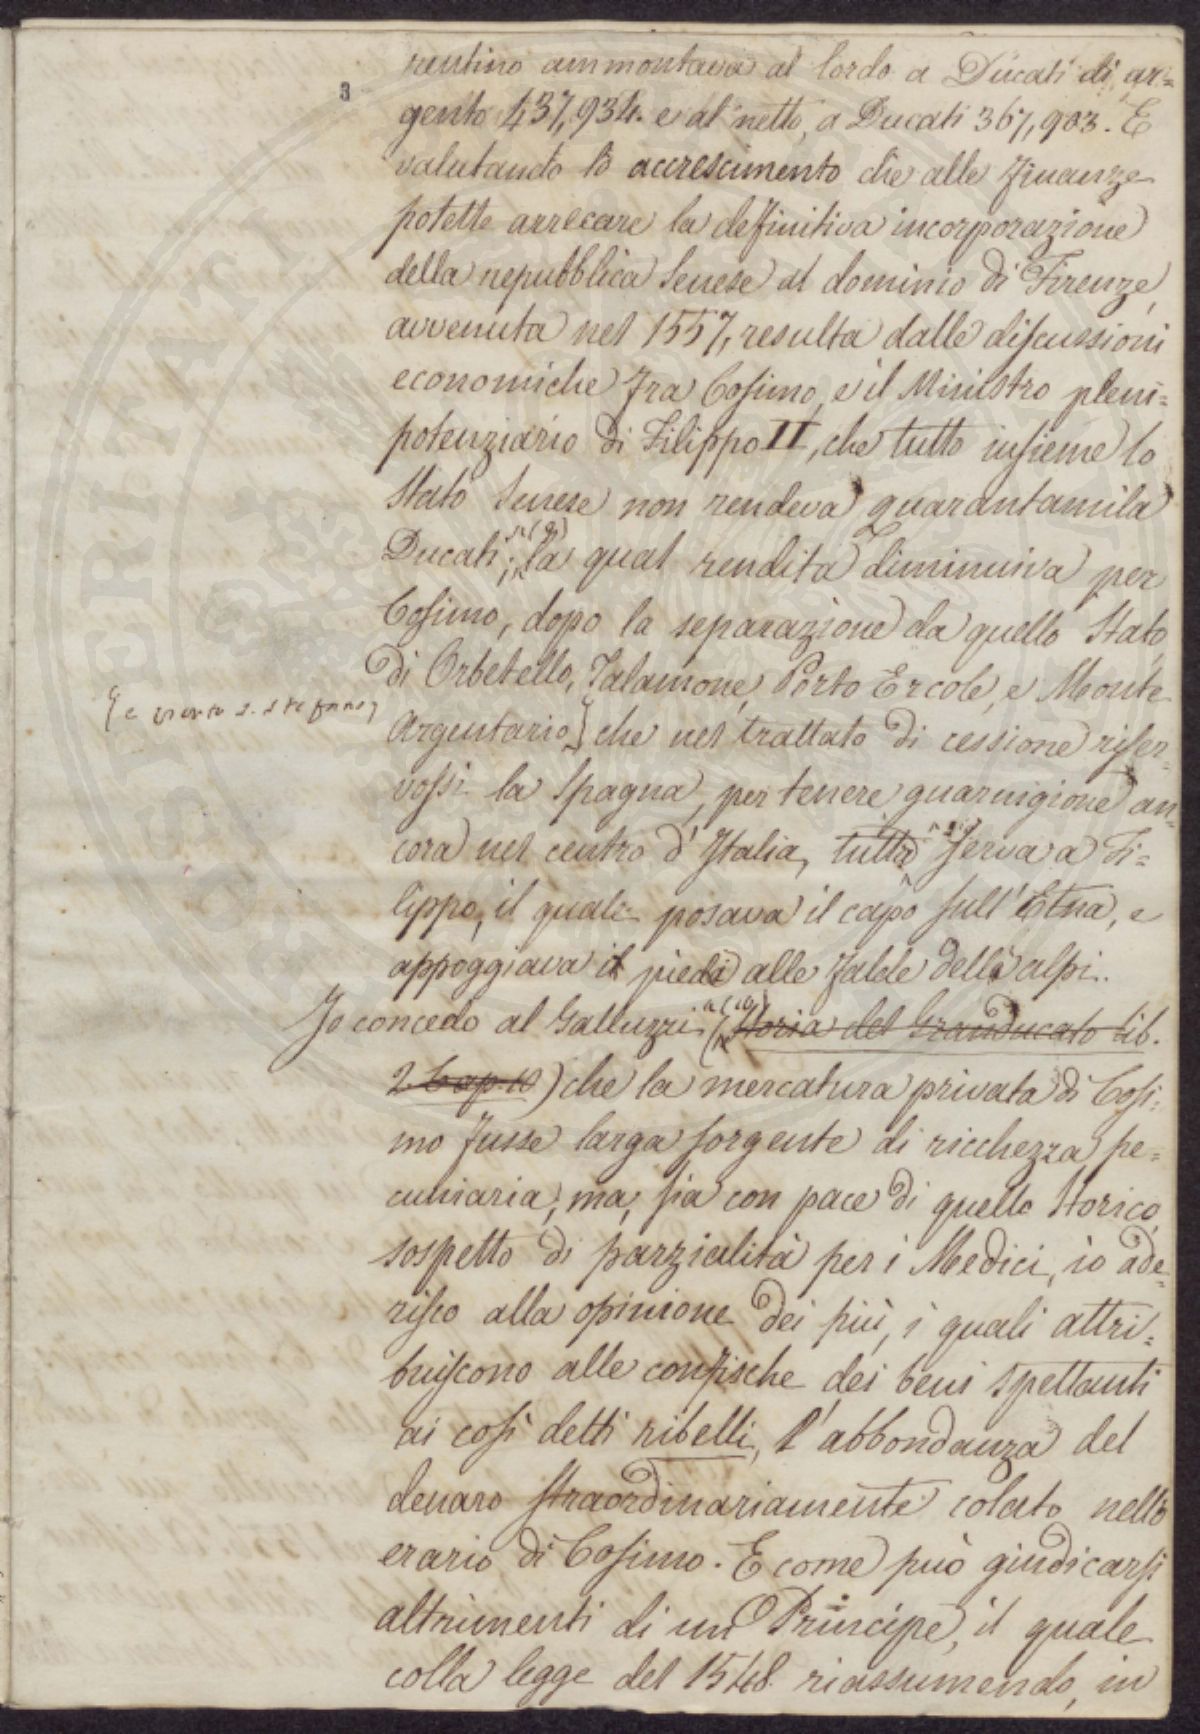 3
rentino ammontava al lordo a Ducati di ar=
gento 437,934. e al netto, a Ducati 367,903. E
valutando lo accrescimento che alle finanze
potette arrecare la definitiva incorporazione
della repubblica Senese al dominio di Firenze,
avvenuta nel 1557, resulta dalle discussioni
economiche fra Cosimo, e il Ministro pleni=
potenziario di Filippo II, che tutto insieme lo
Stato Senese non rendeva quarantamila
Ducati; (9) la qual rendita diminuiva per
Cosimo, dopo la separazione da quello Stato,
di Orbetello, Talamone, Porto Ercole, e Monte
{e Porto S. Stefano}
Argentario} che nel trattato di cessione riser-
vossi la Spagna, per tenere guarnigione an-
cora nel centro d'Italia, tutta serva a Fi=
lippo, il quale posava il capo sull'Etna, e
appoggiava i piedi alle falde delle alpi.
Io concedo al Galluzzi (10) (Storia del Granducato Lib.
2. Cap. 10) che la mercatura privata di Cosi-
mo fusse larga sorgente di ricchezza pe=
cuniaria; ma, sia con pace di quello Storico,
sospetto di parzialità per i Medici, io ade=
risco alla opinione dei più, i quali attri=
buiscono alle confische dei beni spettanti
ai così detti ribelli, l'abbondanza del
denaro straordinariamente colato nello
erario di Cosimo. E come può giudicarsi
altrimenti di un Principe, il quale
colla legge del 1548. riassumendo, in